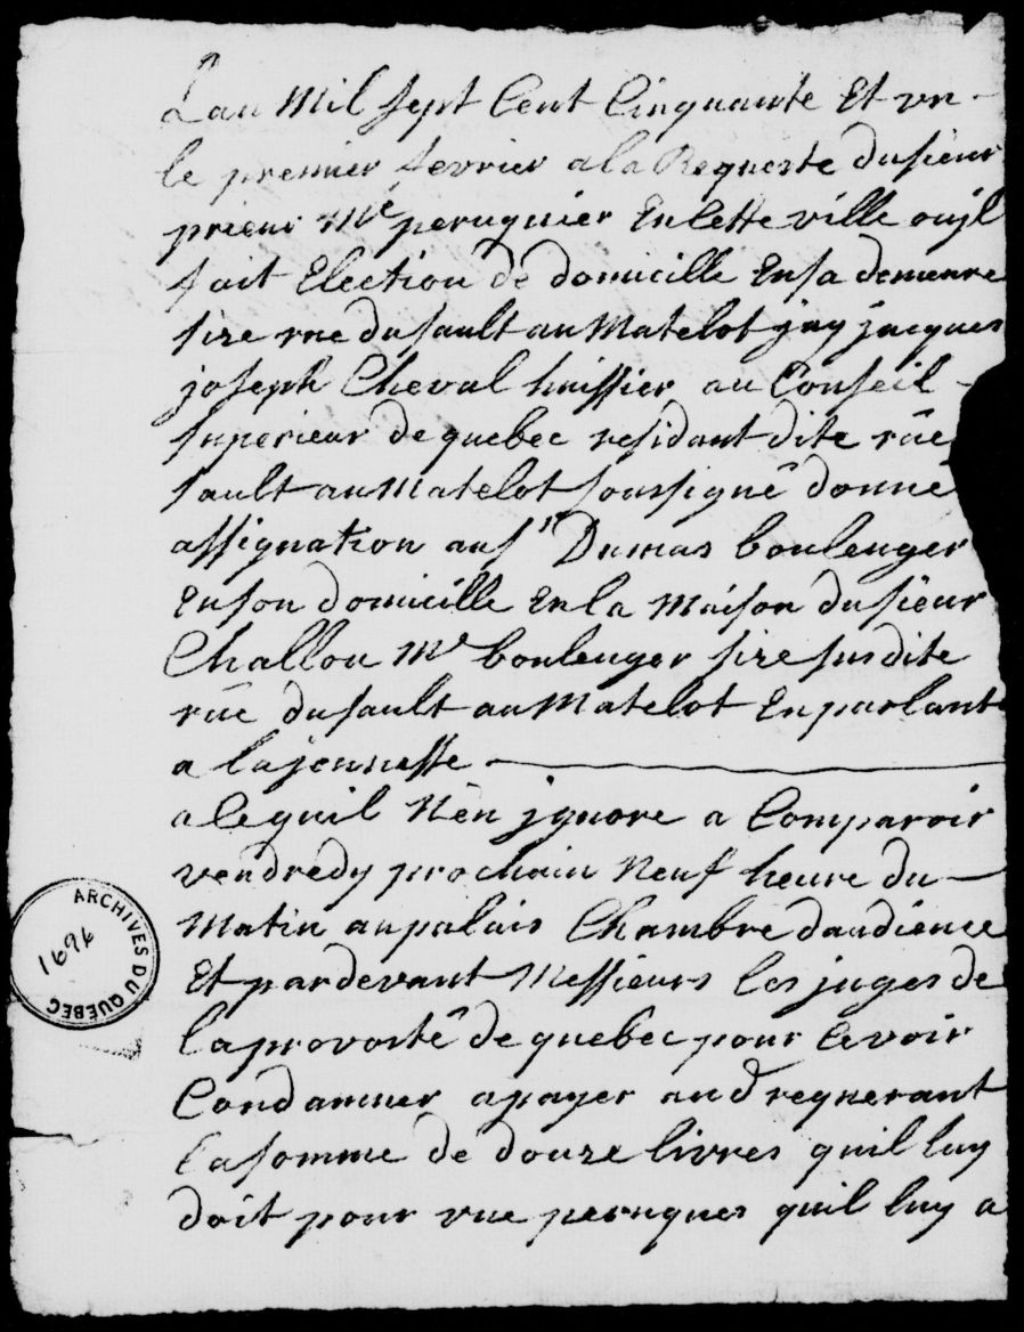 Lan Mil sept Cent Cinquante Et un
le premier fevrier a la Requeste du sieur
prieur Me peruquier En Cette ville ou jl
fait Election de domicille En sa demeure
size rue du sault au Matelot jay jacques
joseph Cheval huissier au Conseil
superieur de quebec residant dite rüe
sault au Matelot soussigné donné
assignation au sr Dumas boulenger
En son domicille En la Maison du sieur
Challou Me boulenger size susdite
rüe du sault au Matelot En parlant
a lajeunesse
a Ce quil Nen jgnore a Comparoir
vendredy prochain Neuf heure du
Matin au palais Chambre daudience
Et pardevant Messieurs les juges de
la provosté de quebec pour Ce voir
Condamner a payer aud requerant
la somme de douze livres quil luy
doit pour une peruques quil luy a
ARCHIVES DU QUEBEC
1694